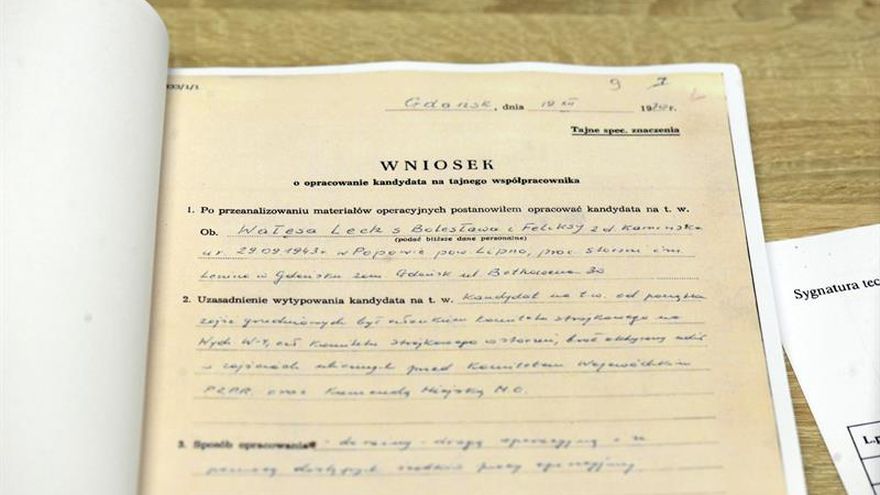 333/1/1
9 7
Gdańsk, dnia 19 XII 1970 r.
Tajne spec. znaczenia
WNIOSEK
o opracowanie kandydata na tajnego współpracownika
1. Po przeanalizowaniu materiałów operacyjnych postanowiłem opracować kandydata na t. w.
Ob. Wałęsa Lech s Bolesława i Feliksy z d. Kamińska
(podać bliższe dane personalne)
ur. 29.09.1943 r w Popowie pow. Lipno, prac. stoczni im.
Lenina w Gdańsku zam. Gdańsk ul.
2. Uzasadnienie wytypowania kandydata na t. w. Kandydat na t.w. od początku
zajść grudniowych był członkiem komitetu strajkowego na
Wydz. W-4, Komitetu strajkowego w stoczni, brał aktywny udział
w zajściach ulicznych przed Komitetem Wojewódzkim
PZPR oraz Komendą Miejską M.O.
3. Sposób opracowania - drogą operacyjną i za
pomocą środków pracy operacyjnej
Sygnatura tec
L.p